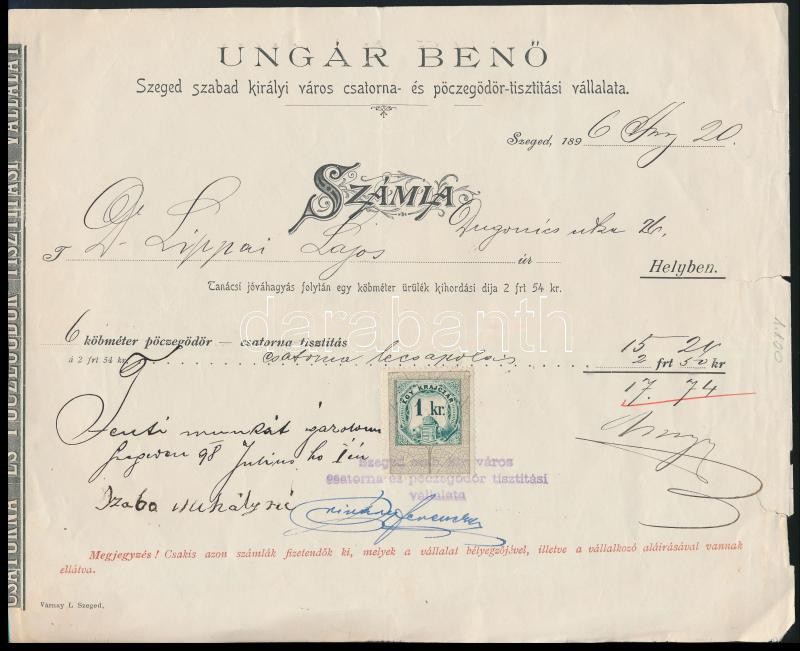 UNGÁR BENŐ
Szeged szabad királyi város csatorna- és pöczegödör-tisztitási vállalata.
Szeged, 1896 20.
SZÁMLA
Dr Lippai Lajos Dugonics utca 26.
T úr Helyben.
Tanácsi jóváhagyás folytán egy köbméter ürülék kihordási dija 2 frt 54 kr.
6 köbméter pöczegödör — csatorna tisztitás 15 24
á 2 frt 54 kr. csatorna lecsapolás 2 frt 50 kr
17. 74
EGY KRAJCZÁR
1 kr.
Fenti munkát igazolom
Szegeden 98 Julius hó 1 én
Szabó Mihályné
Szeged szab. kir. város
csatorna és pöczegödör tisztitási
vállalata
Megjegyzés! Csakis azon számlák fizetendők ki, melyek a vállalat bélyegzőjével, illetve a vállalkozó aláirásával vannak
ellátva.
Várnay L Szeged,
CSATORNA ÉS PÖCZEGÖDÖR TISZTITÁSI VÁLLALAT
darabanth